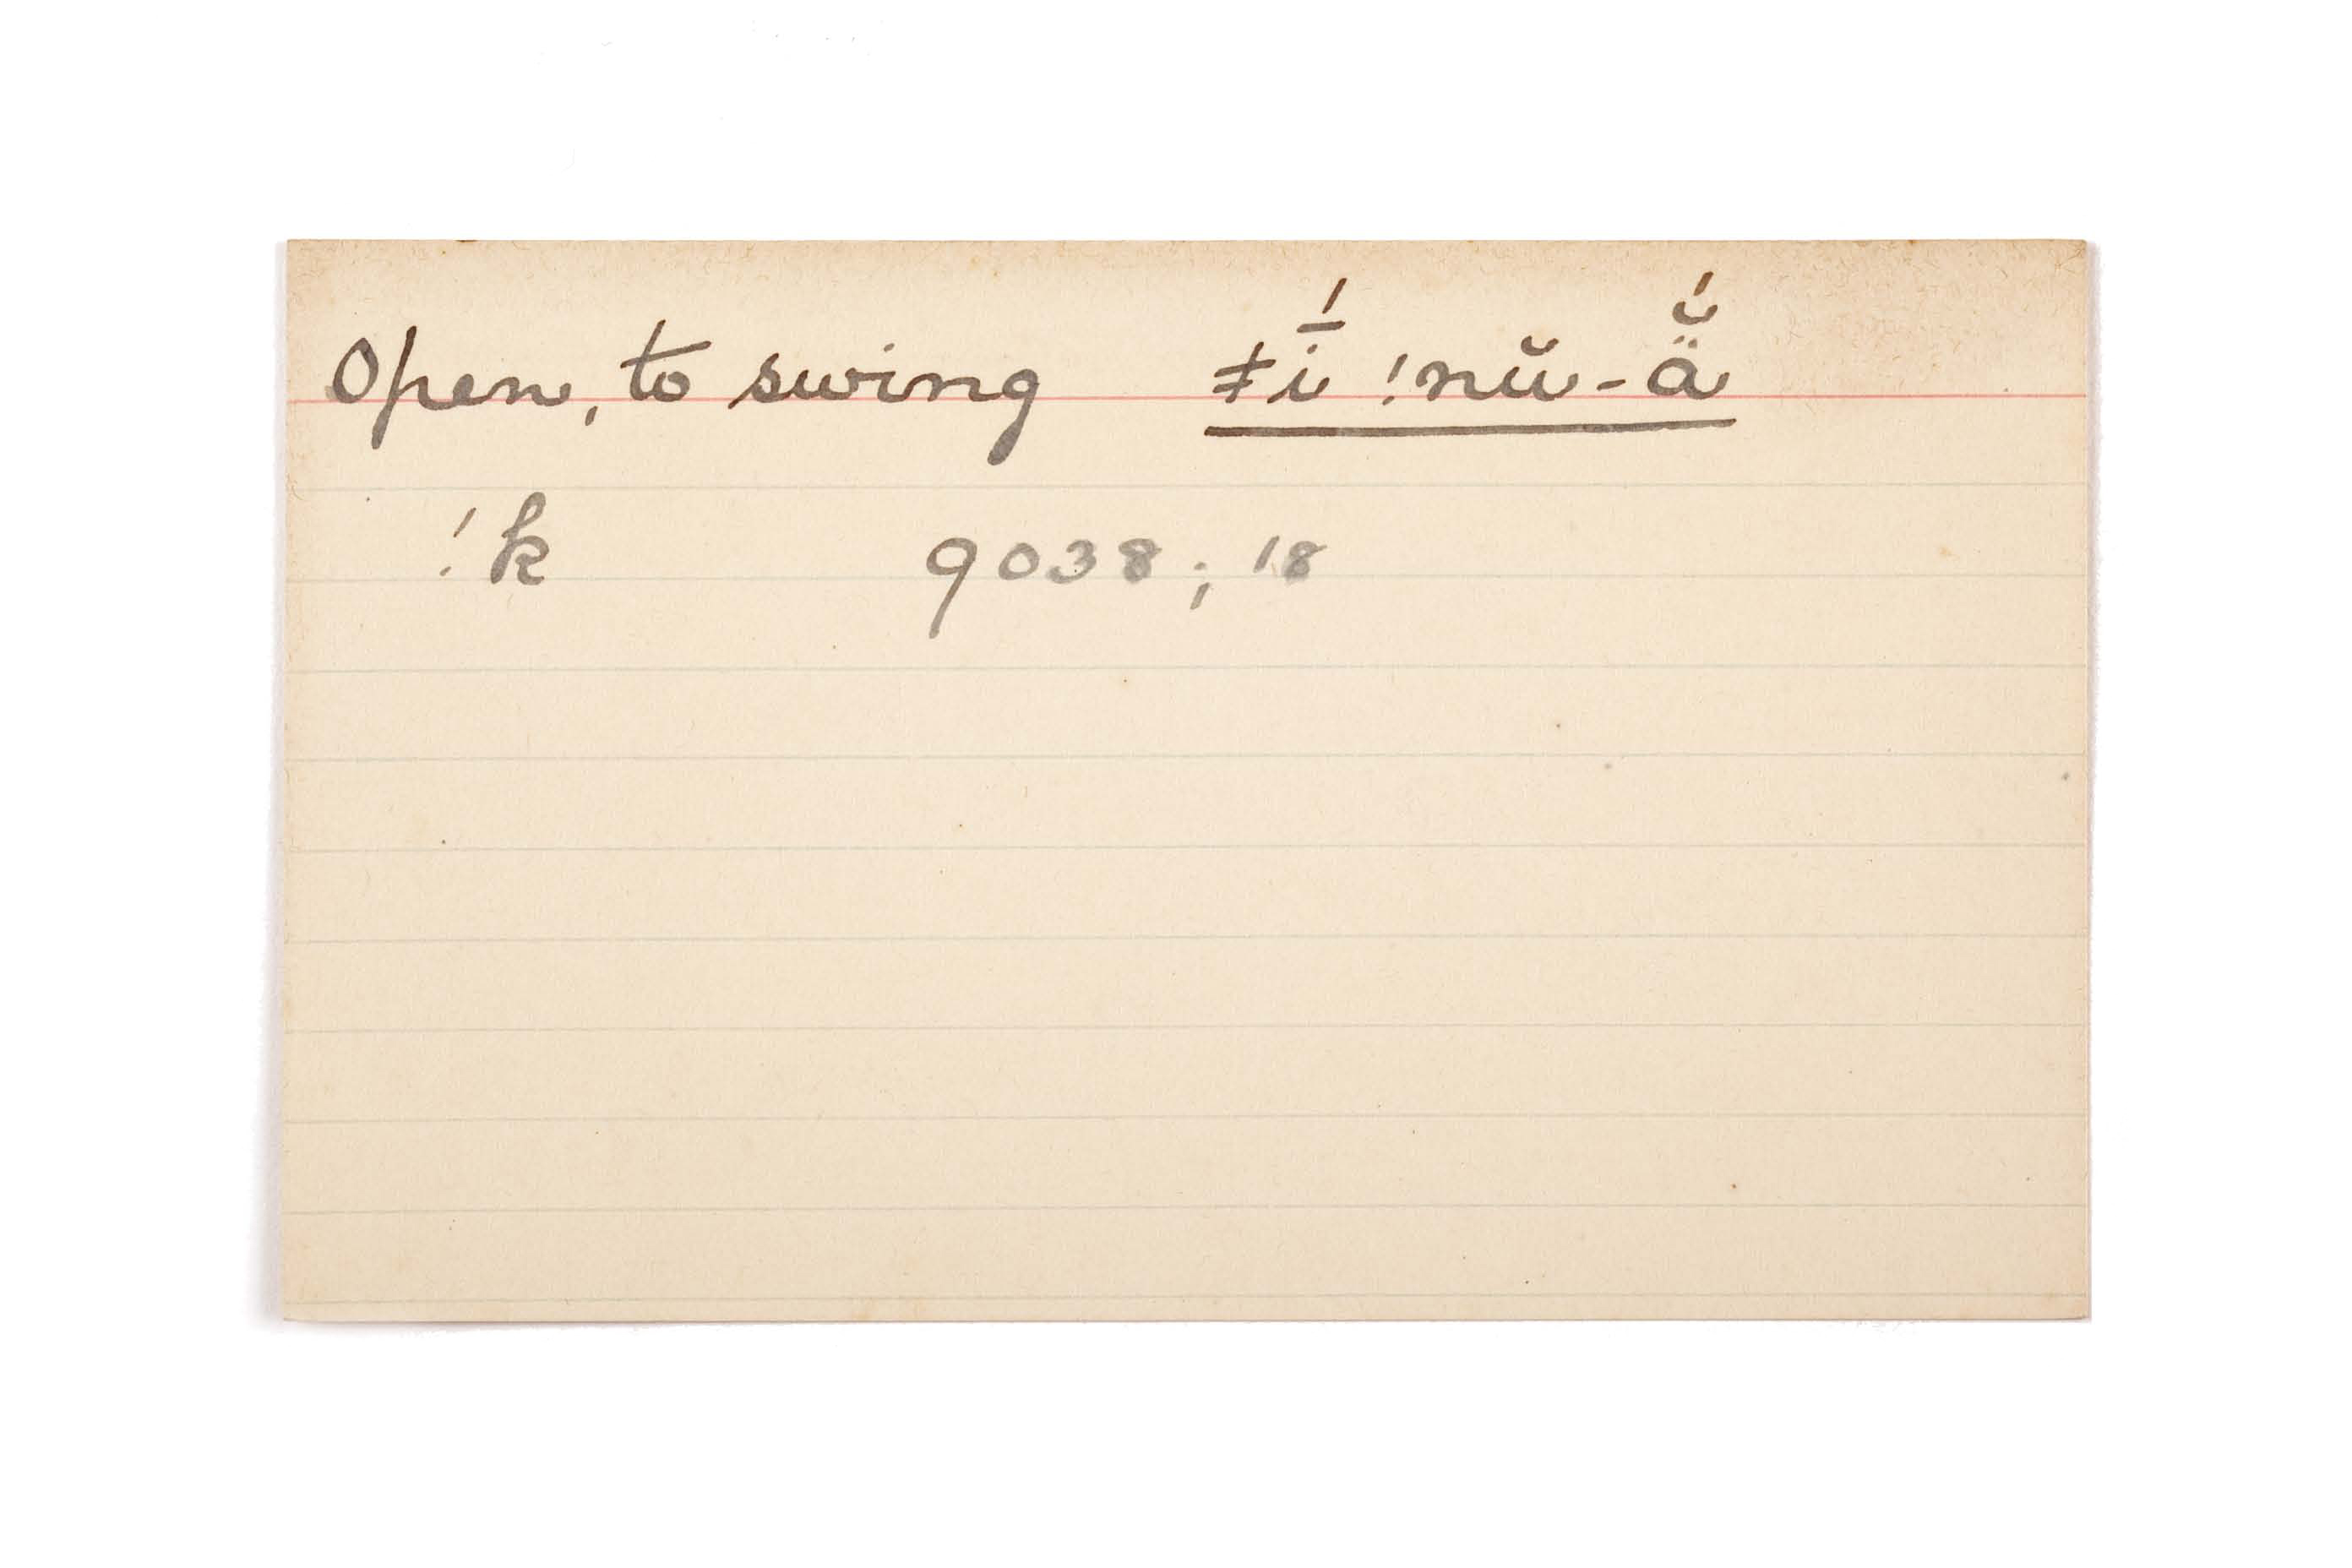 Open, to swing ǂī́ !nŭ-ä̆́
!k 9038; 18